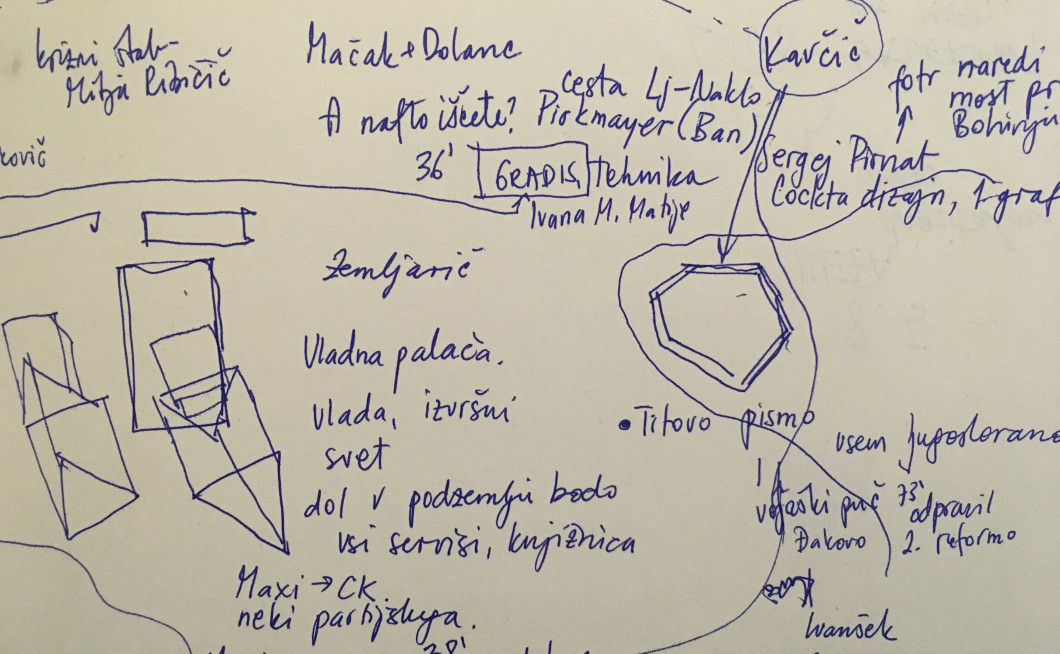 križni štab-
Mitja Ribičič
Mačak + Dolanc
A nafto iščete?
36'
GRADIS, tehnika
Ivana M. Matije
cesta Lj-Naklo
Pirkmayer (Ban)
Kavčič
fotr naredi
most pr
Bohinju
Sergej Pirnat
Cockta dizajn, 1. graf
ković
Zemljarič
Vladna palača.
vlada, izvršni
svet
dol v podzemlju bodo
vsi servisi, knjižnica
Maxi → CK
neki partijskega.
38'
• Titovo pismo
vsem Jugoslovano
vojaški puč
Đakovo
73'
odpravil
2. reformo
Ivanšek